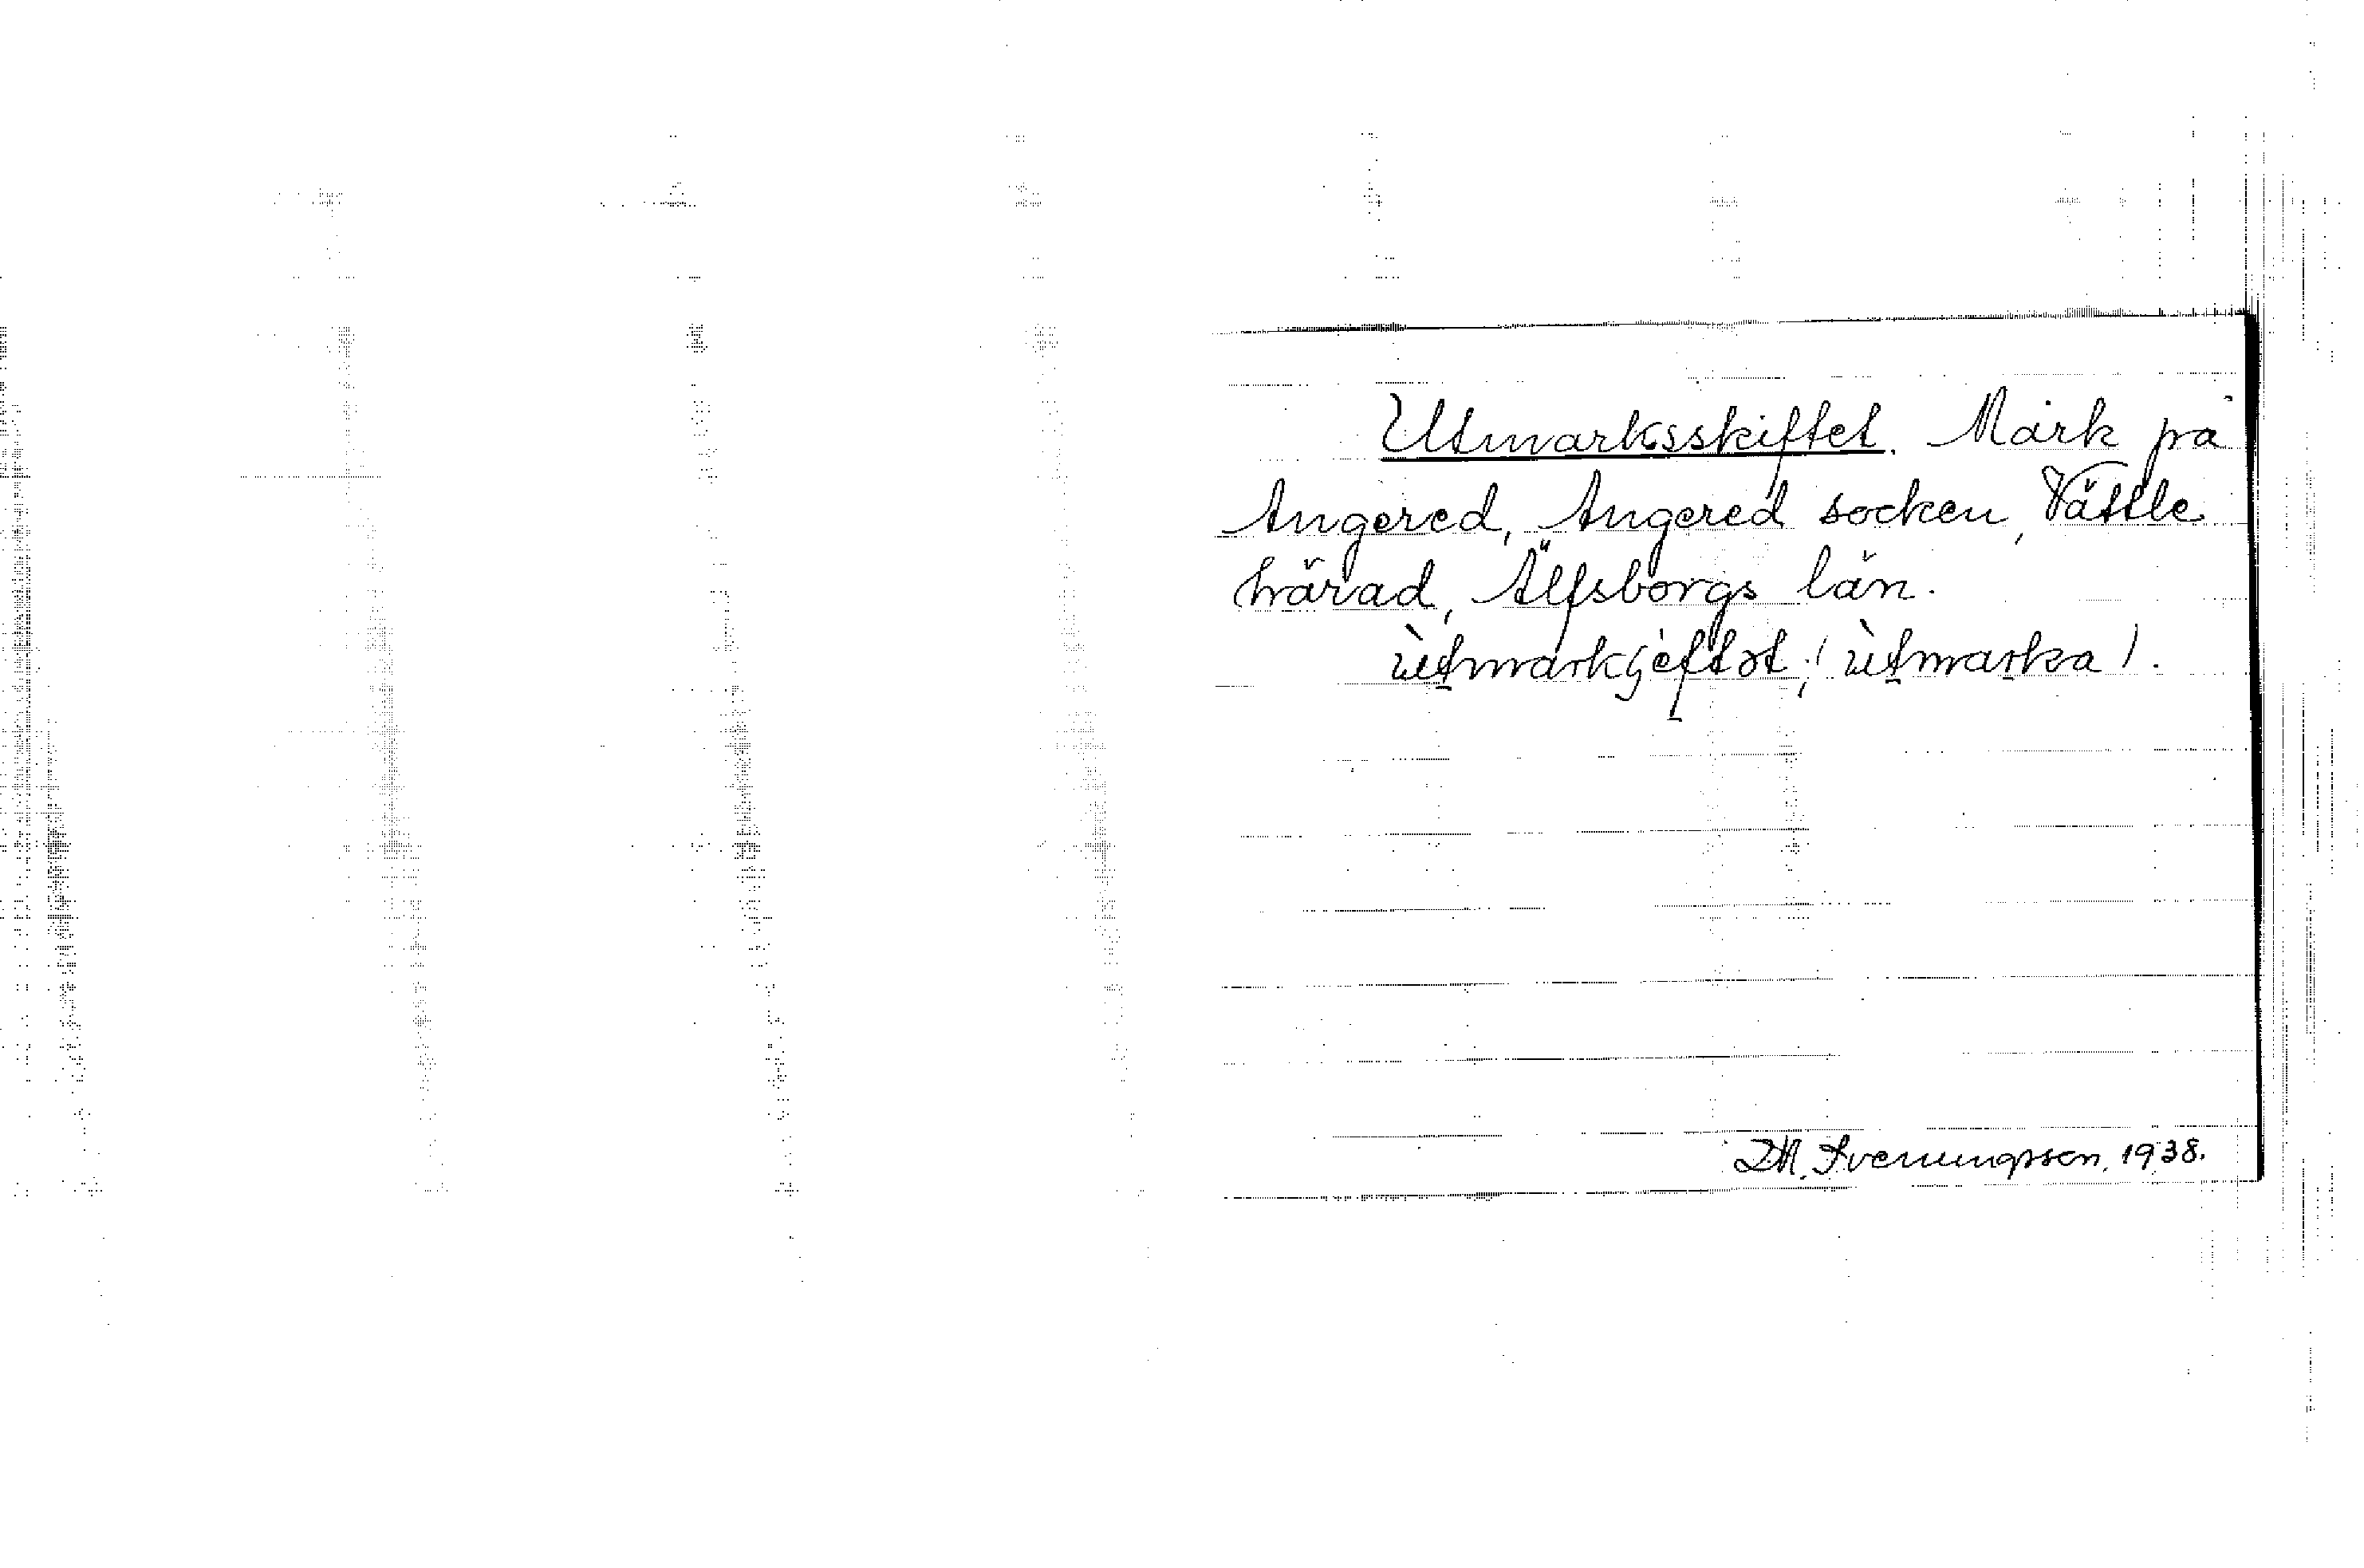 Utmarksskiftet. Mark på
Angered, Angered socken, Vättle
härad, Älfsborgs län.
ùtmarkʃèftət; (ùtmarka).
D.M. Svenungsson, 1938.